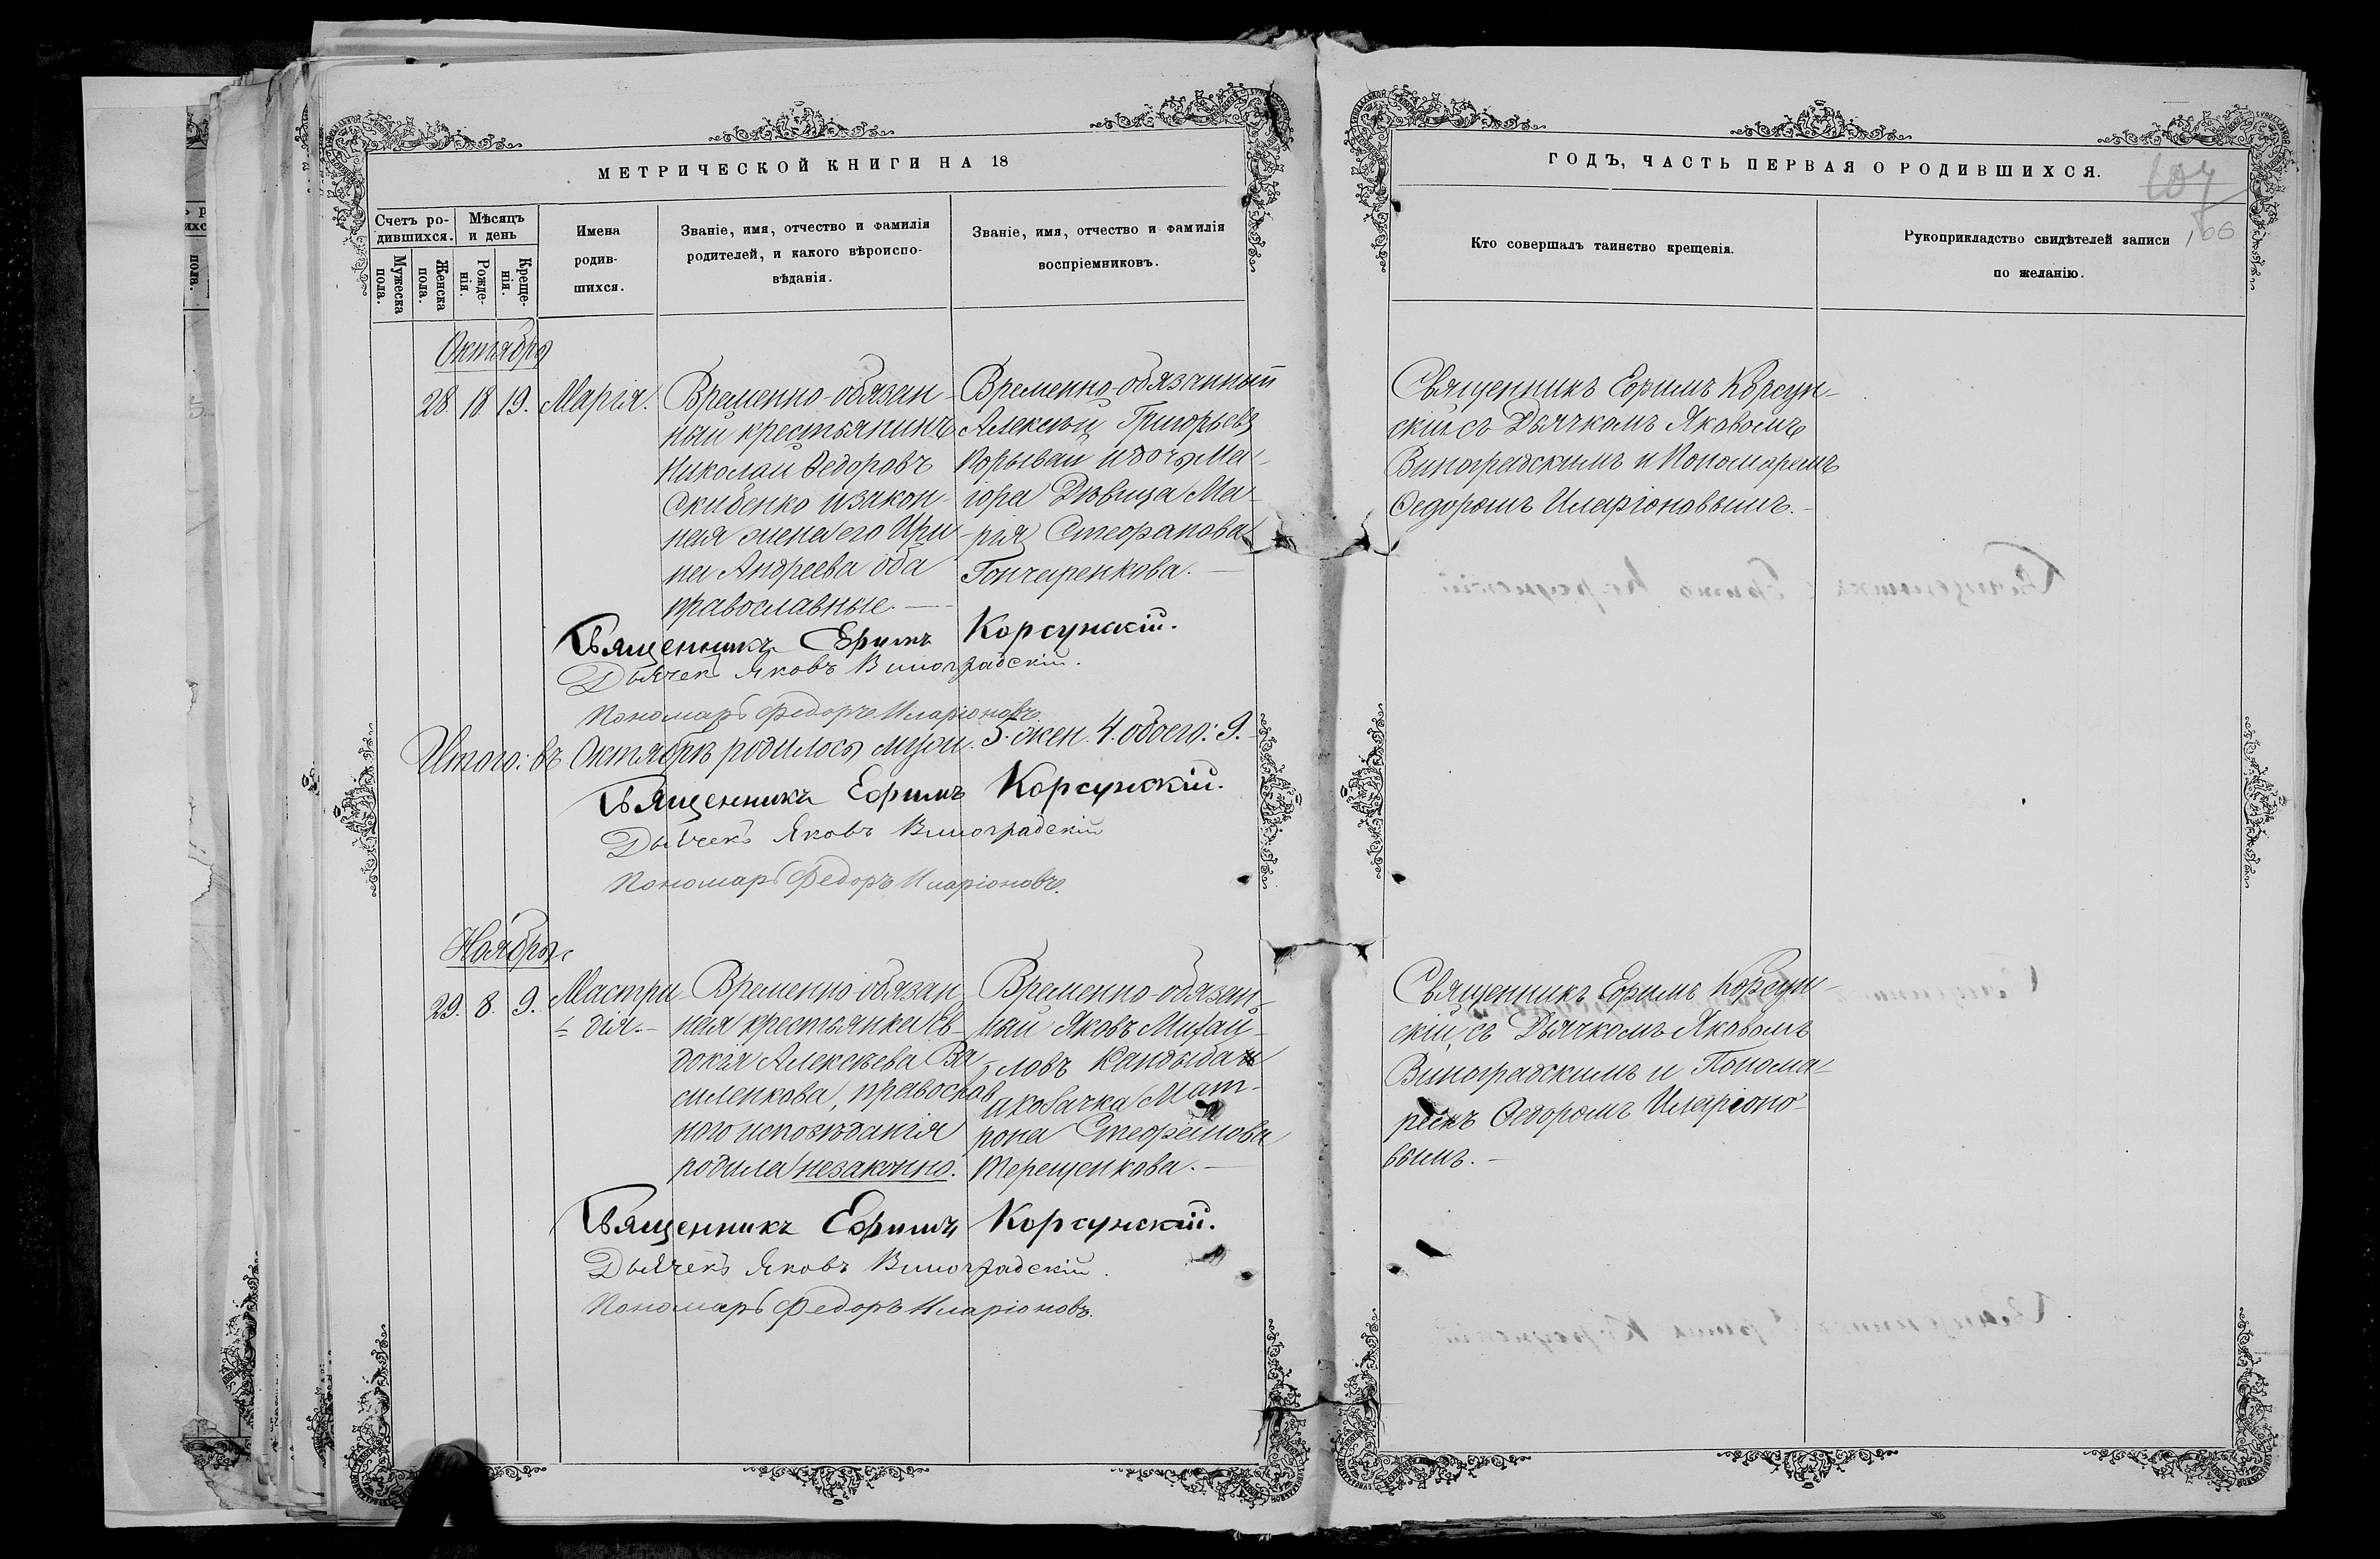 МЕТРИЧЕСКОЙ КНИГИ НА 18
Счетъ ро-
дившихся.
Мѣсяцъ
и день
Мужеска
пола.
Женска
пола.
Рожде-
нія.
Креще-
нія.
Имена
родив-
шихся.
Званіе, имя, отчество и фамилія
родителей, и какого вѣроиспо-
вѣданія.
Званіе, имя, отчество и фамилія
воспріемниковъ.
Октября
28. 18 19. Марія.
Временно-обязан-
ный крестьянинъ
Николай Ѳедоровъ
Скибенко и закон-
ная жена его Ири-
на Андреева оба
православные.
Временно-обязанный
Алексѣй Григорьевъ
и дочь Ма-
іора Дѣвица Ма-
рія Стефанова
Гончаренкова.
Священникъ Ефимъ Корсунскій.
Дьячекъ Яковъ Виноградскій.
Пономарь Федоръ Иларіоновъ.
Итого: въ Октябрѣ родилось муж. 5. жен. 4. обоего: 9.
Священникъ Ефимъ Корсунскій.
Дьячекъ Яковъ Виноградскій
Пономарь Федоръ Иларіоновъ.
Ноябрь
29. 8. 9. Мастри
дія.
Временно-обязан-
ная крестьянка Ев-
докія Алексѣева Ва-
силенкова, православ
ного исповѣданія
родила незаконно.
Временно-обязан-
ный Яковъ Михай-
ловъ
и козачка Мат-
рона Стефанова
Терещенкова.
Священникъ Ефимъ Корсунскій.
Дьячекъ Яковъ Виноградскій.
Пономарь Федоръ Иларіоновъ.
ГОДЪ, ЧАСТЬ ПЕРВАЯ О РОДИВШИХСЯ.
107
106
Кто совершалъ таинство крещенія.
Рукоприкладство свидѣтелей записи
по желанію.
Священникъ Ефимъ Корсун-
скій съ Дьячкомъ Яковомъ
Виноградскимъ и Пономаремъ
Ѳедоромъ Иларіоновымъ.
Священникъ Ефимъ Корсун-
скій, съ Дьячкомъ Яковомъ
Виноградскимъ и Понома-
ремъ Ѳедоромъ Иларіоно-
вымъ.